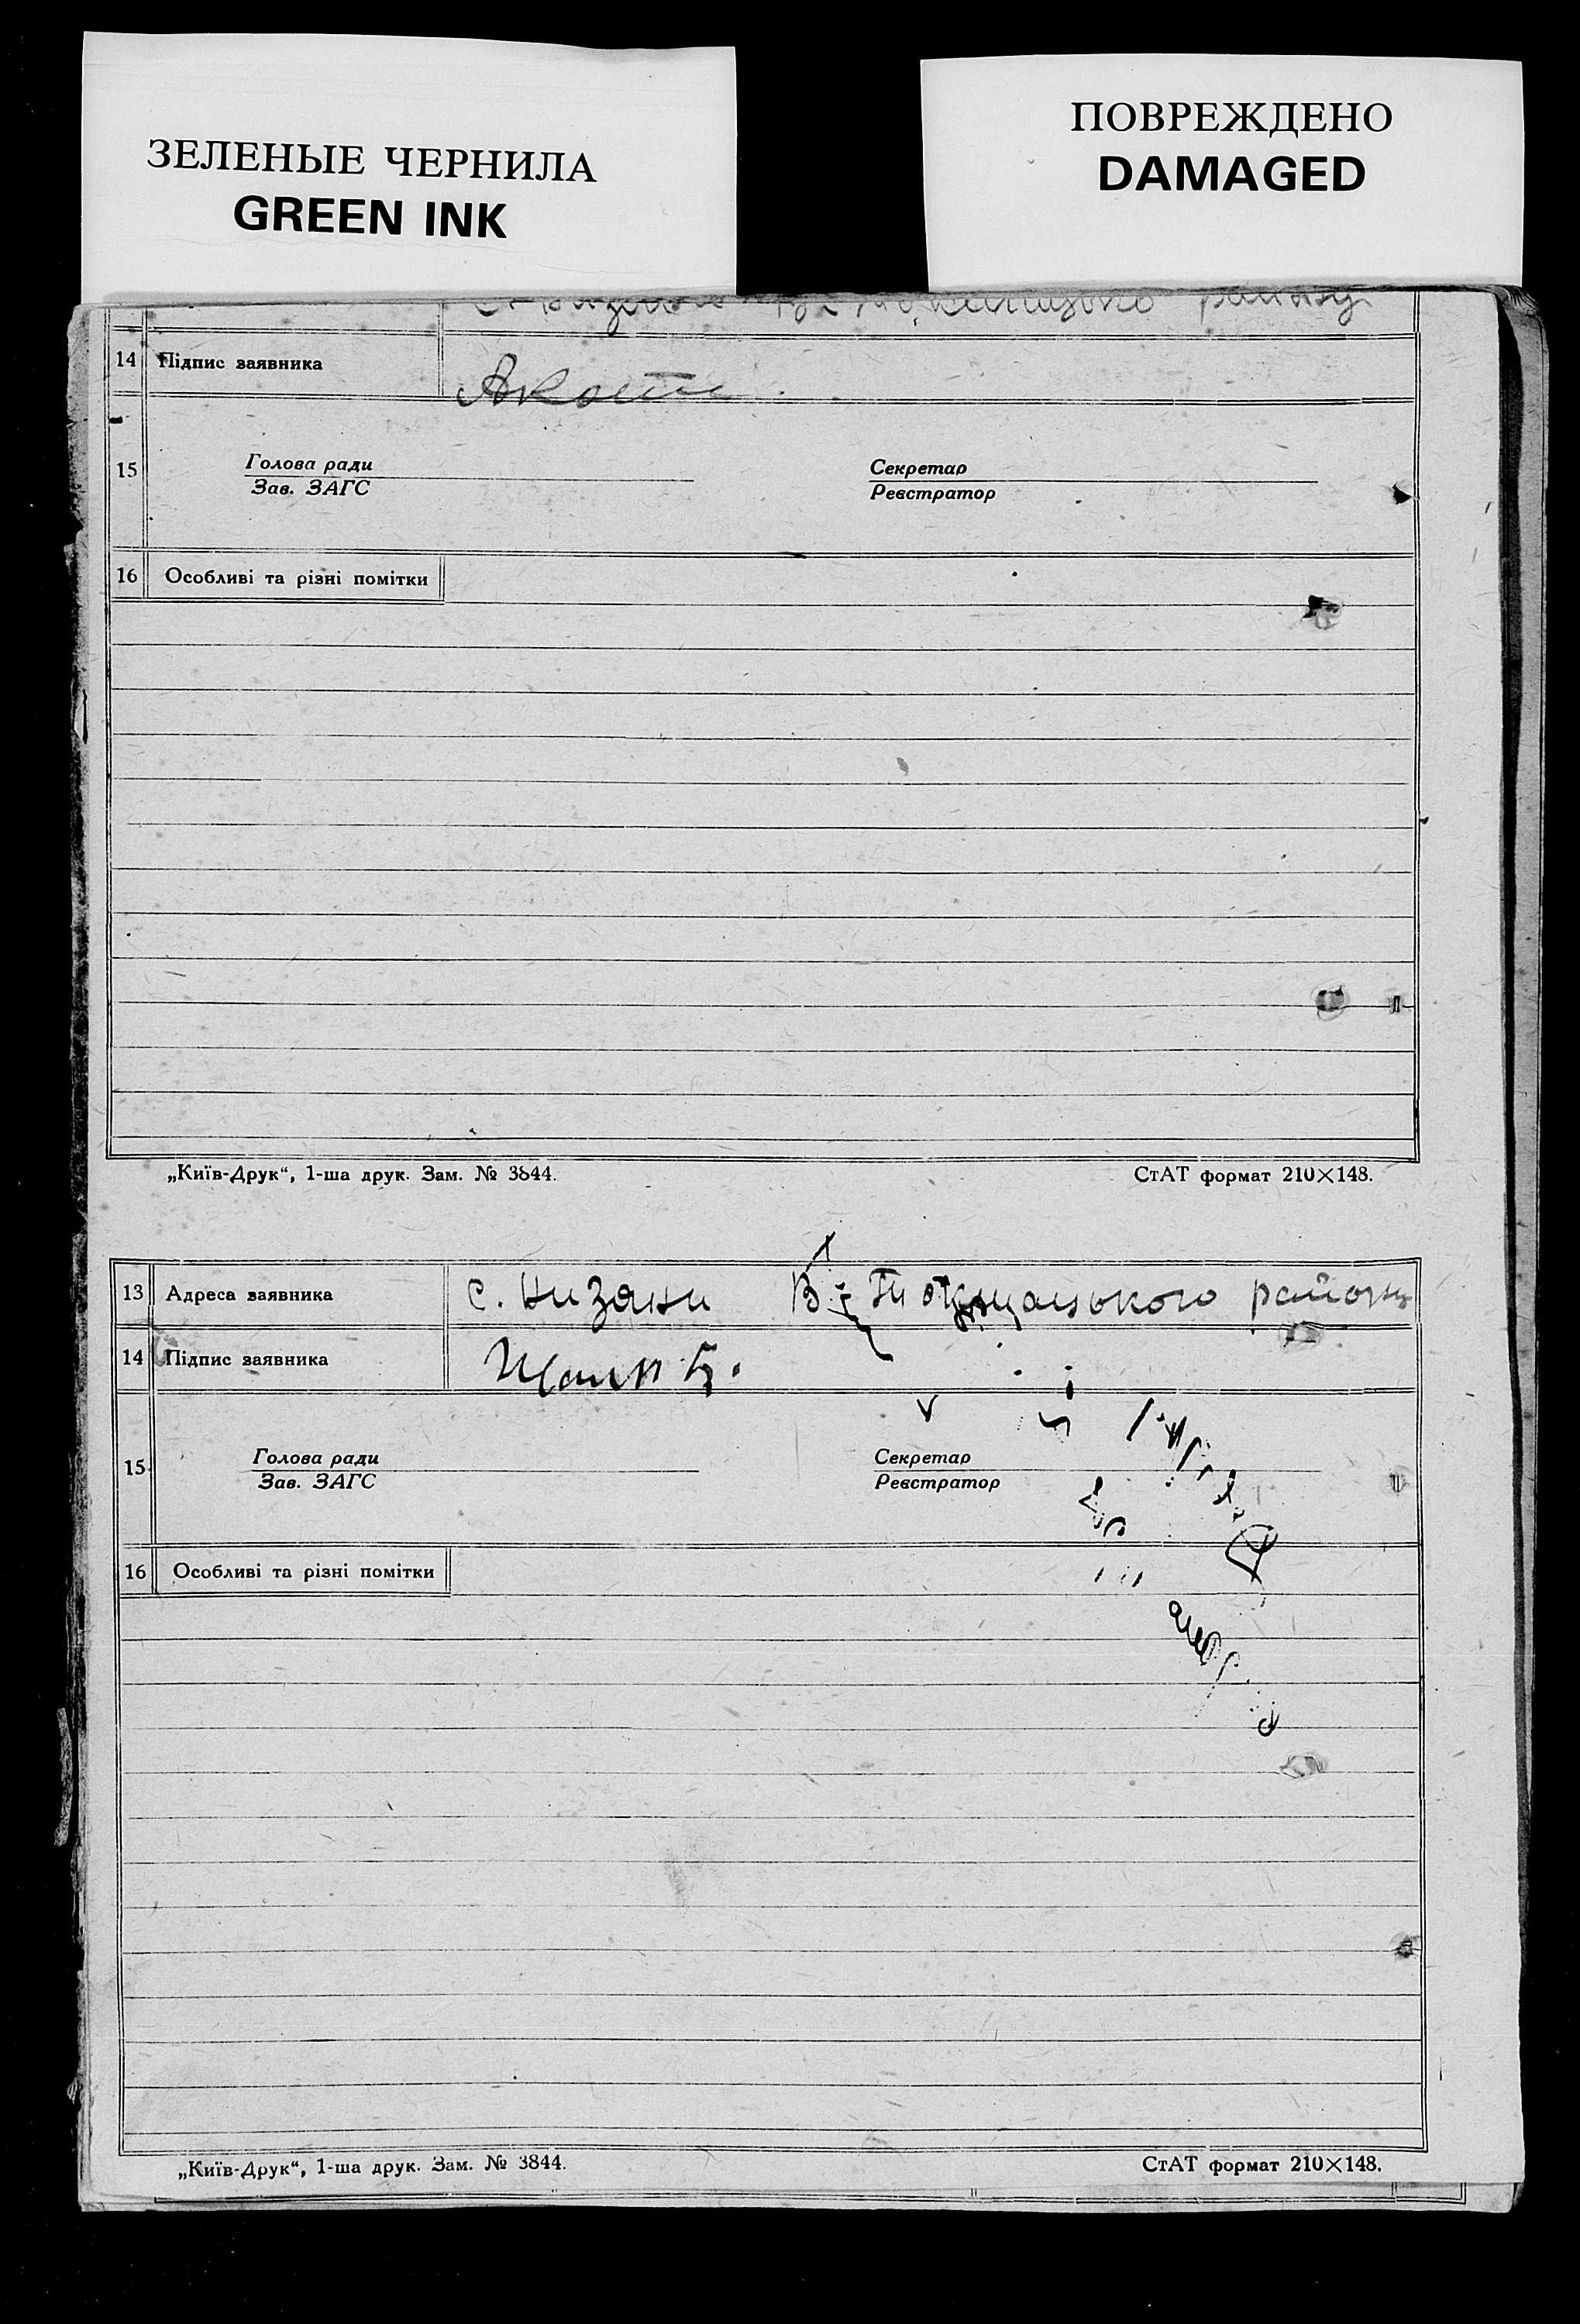 ЗЕЛЕНЫЕ ЧЕРНИЛА
GREEN INK
ПОВРЕЖДЕНО
DAMAGED
району
14 Підпис заявника
15 Голова ради Секретар
Зав. ЗАГС Реєстратор
16 Особливі та різні помітки
„Київ-Друк“, 1-ша друк. Зам. № 3844. СтАТ формат 210×148.
13 Адреса заявника с. Низяни району
14 Підпис заявника
15 Голова ради Секретар
Зав. ЗАГС Реєстратор
16 Особливі та різні помітки
„Київ-Друк“, 1-ша друк. Зам. № 3844. СтАТ формат 210×148.